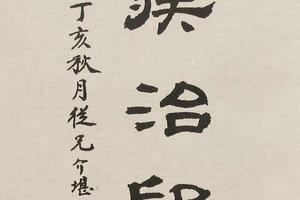 治印
丁亥秋月從兄介堪